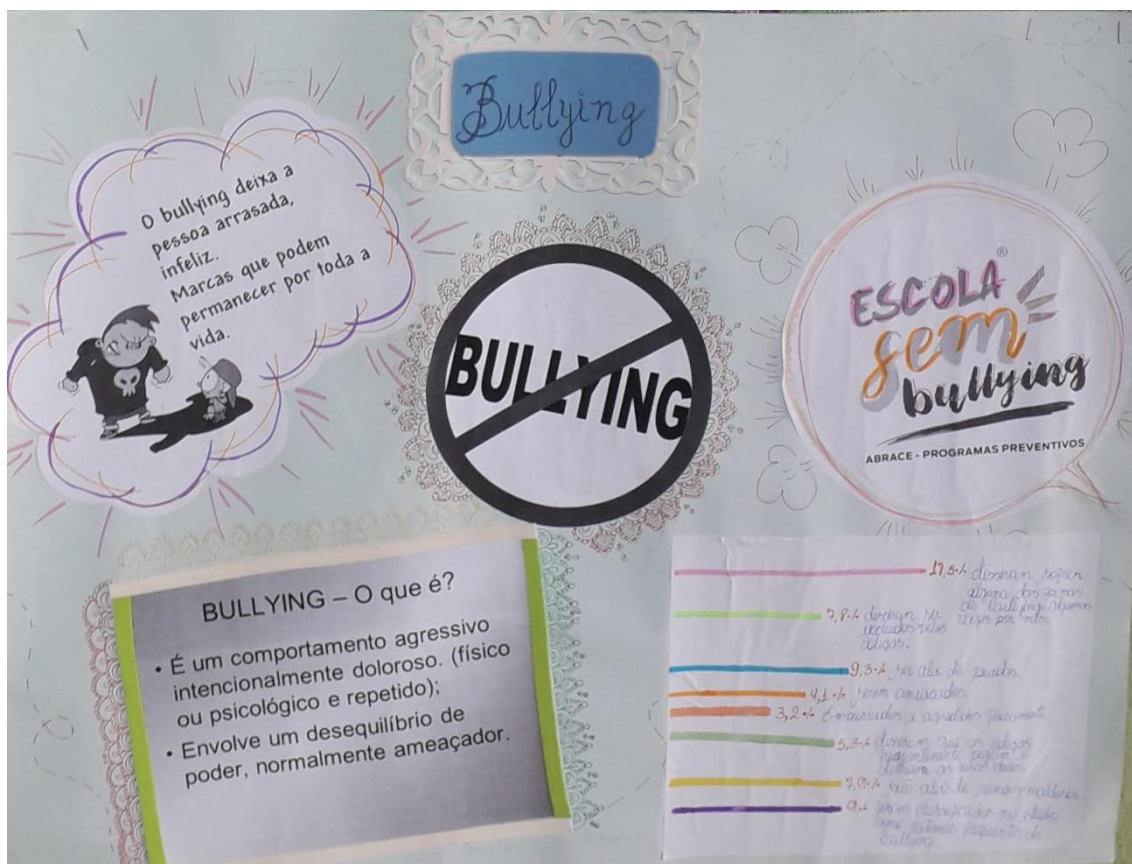 Bullying
O bullying deixa a
pessoa arrasada,
infeliz.
Marcas que podem
permanecer por toda a
vida.
BULLYING
ESCOLA ®
sem
bullying
ABRACE - PROGRAMAS PREVENTIVOS
BULLYING – O que é?
• É um comportamento agressivo
intencionalmente doloroso. (físico
ou psicológico e repetido);
• Envolve um desequilíbrio de
poder, normalmente ameaçador.
17,5% disseram sofrer
alguma das formas
de bullying algumas
vezes por mês.
7,8% disseram ser
excluídos pelos
colegas.
9,3% ser alvo de piadas.
4,1% serem ameaçados.
3,2% empurrados e agredidos fisicamente
5,3% disseram que os colegas
frequentemente pegam e
destroem as coisas deles
7,9% são alvo de rumores maldosos
9% foram classificados no estudo
como vítimas frequentes de
bullying.